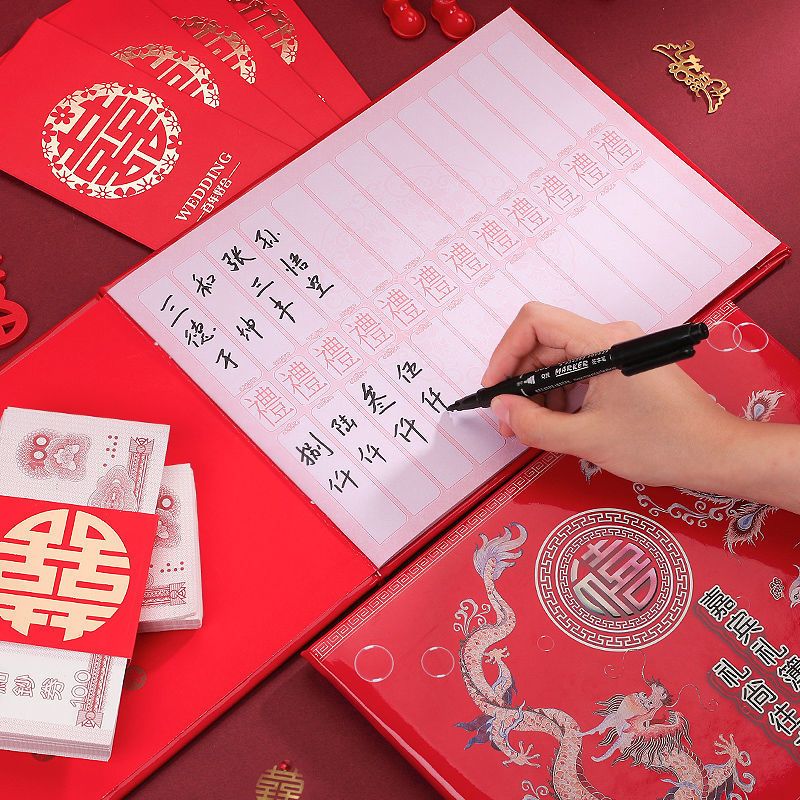 囍
WEDDING
百年好合
孙悟空
张三丰
和坤
三德子
禮禮禮禮禮禮禮禮禮禮禮禮
伍仟
叁仟
陆仟
捌仟
MARKER
囍
鈔券
100
福
嘉宾礼簿
礼尚往
囍